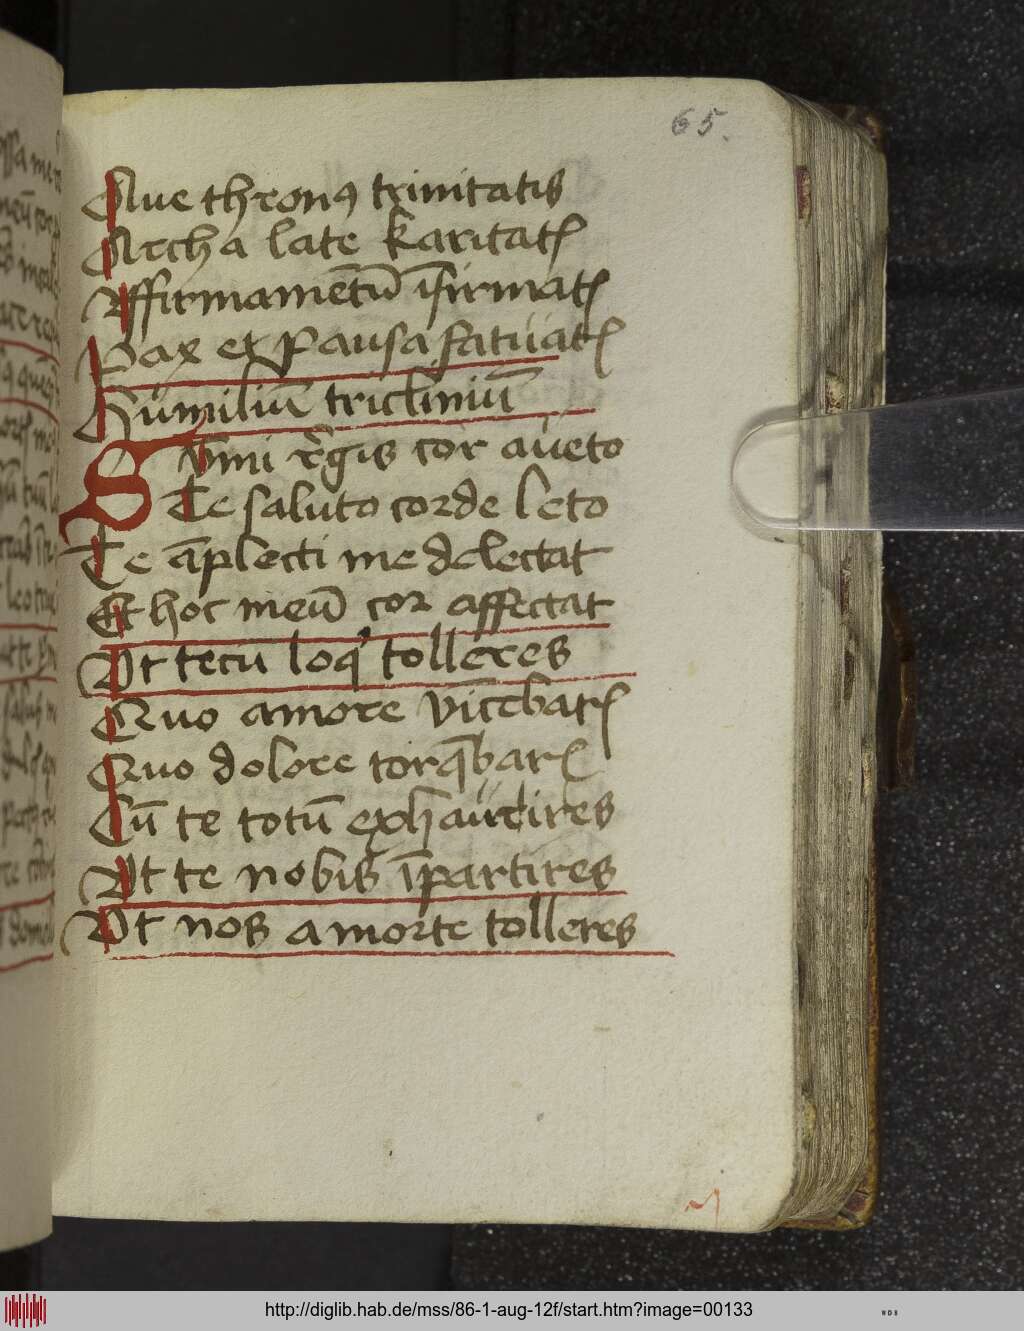 65.
Aue thronꝰ trinitatis
Archa late karitatꝭ
Affirmamētū īfirmatꝭ
Pax ex pausa fatuatꝭ
Humiliū tricliniū
Sūmi regis cor aueto
Te saluto corde leto
Te āplecti me delectat
Et hoc meū cor affectat
Ut tecū loqͥ tolleres
Quo amore vīcebarꝭ
Quo dolore torq̄barꝭ
Cū te totū exhaurires
Ut te nobis īpartires
Ut nos a morte tolleres
http://diglib.hab.de/mss/86-1-aug-12f/start.htm?image=00133